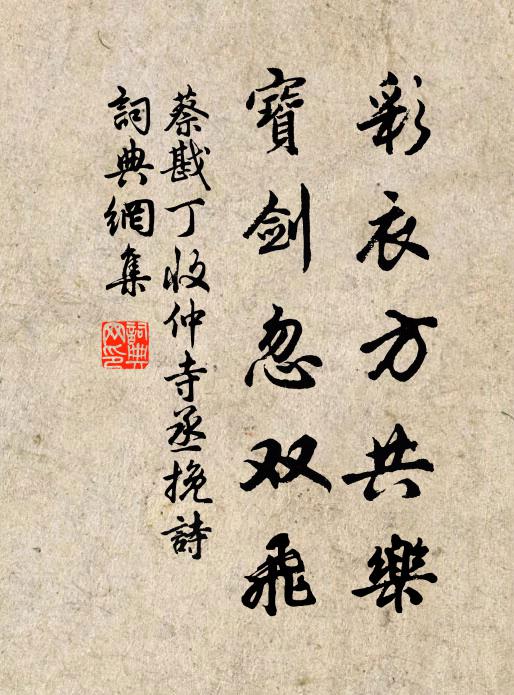 彩衣方共樂
寶剑忽双飛
蔡戡丁收仲寺丞挽詩
詞典網集
詞典网印